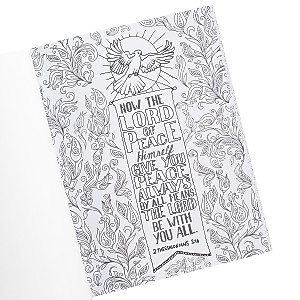 NOW THE
LORD
OF
PEACE
Himself
GIVE YOU
PEACE
ALWAYS
BY ALL MEANS
THE LORD
BE WITH
YOU ALL.
2 THESSALONIANS 3:16